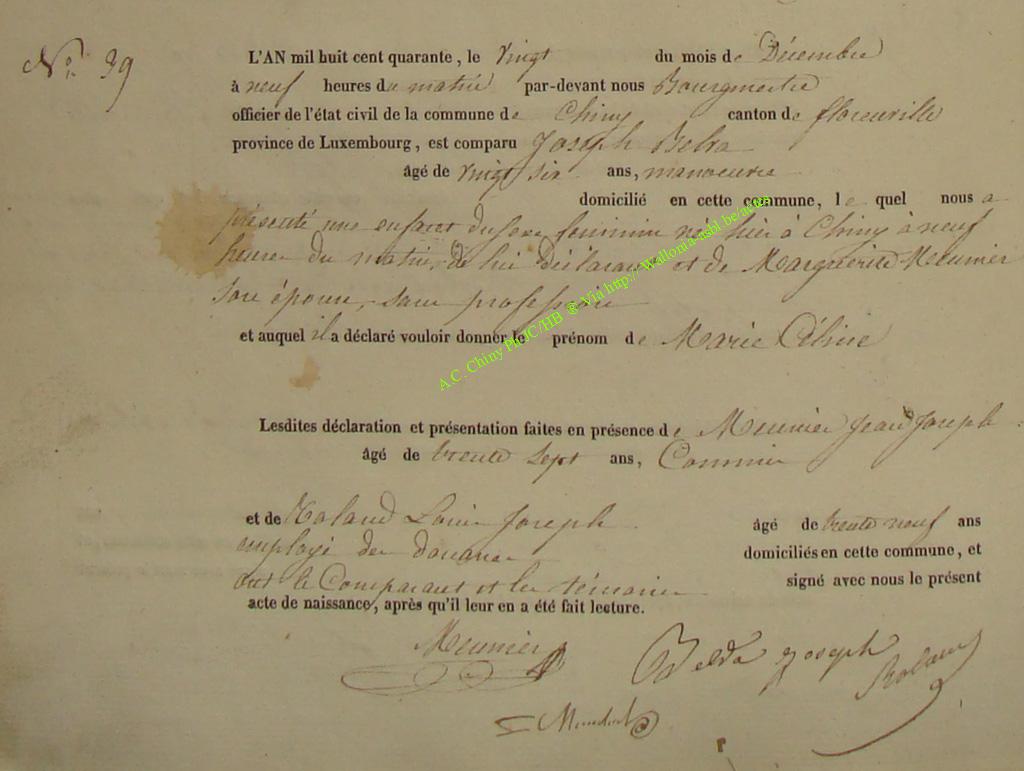 N.° 39
L'AN mil huit cent quarante, le vingt du mois de Décembre
à neuf heures du matin par-devant nous Bourgmestre
officier de l'état civil de la commune de Chiny canton de florenville
province de Luxembourg, est comparu Joseph Belva
âgé de vingt six ans, manoeuvre
domicilié en cette commune, le quel nous a
présenté une enfant du sexe feminin né hier à Chiny à neuf
heures du matin, de lui Déclarant et de Marguerite Meunier
son épouse, sans profession
et auquel il a déclaré vouloir donner le prénom de Marie Céline
Lesdites déclaration et présentation faites en présence de Meunier Jean Joseph
âgé de trente sept ans, Commis
et de Roland Louis Joseph âgé de trente neuf ans
employé des douanes domiciliés en cette commune, et
ont le Comparant et les témoins signé avec nous le présent
acte de naissance, après qu'il leur en a été fait lecture.
Meunier Belva Joseph Roland
A.C. Chiny PhJC/HB @ Via http://Wallonia-asbl.be/actes